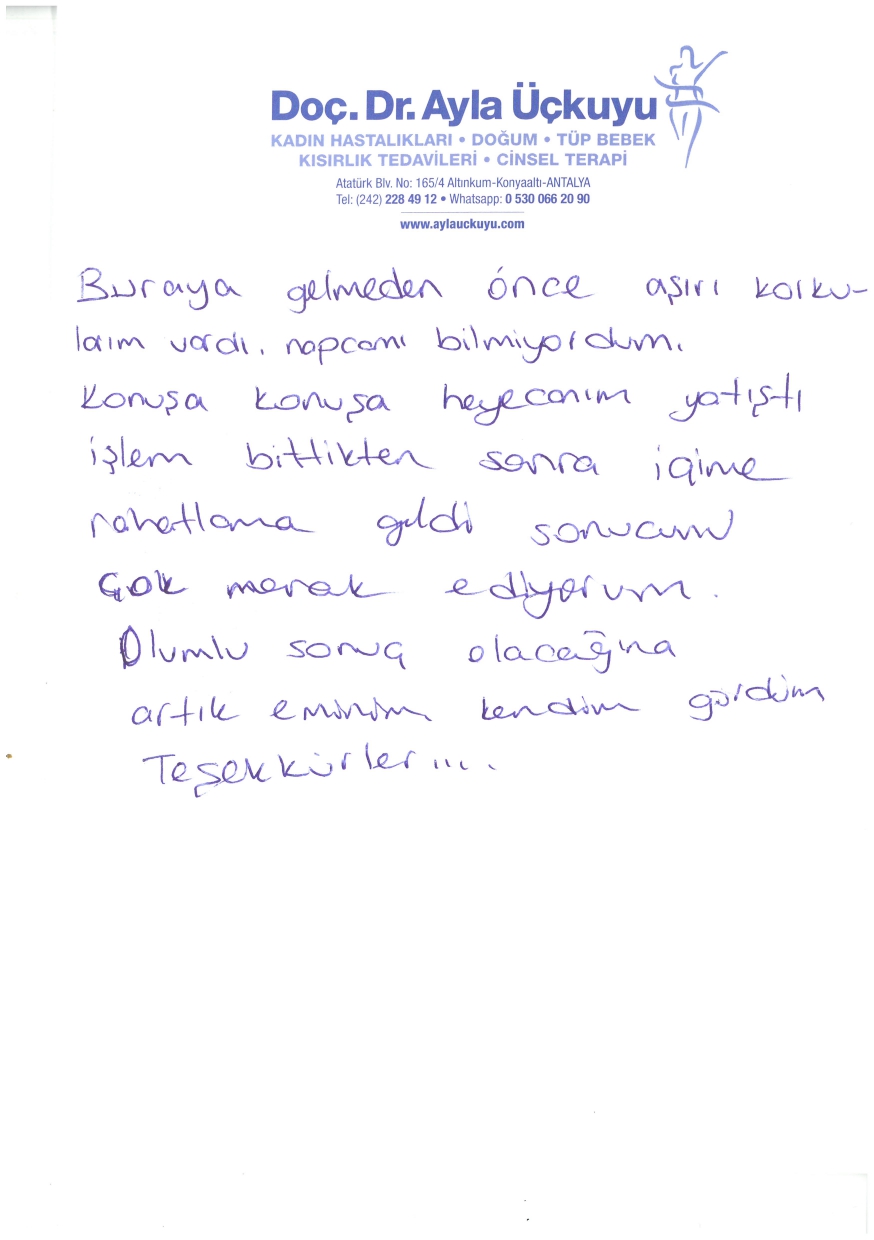 Doç. Dr. Ayla Üçkuyu
KADIN HASTALIKLARI • DOĞUM • TÜP BEBEK
KISIRLIK TEDAVİLERİ • CİNSEL TERAPİ
Atatürk Blv. No: 165/4 Altınkum-Konyaaltı-ANTALYA
Tel: (242) 228 49 12 • Whatsapp: 0 530 066 20 90
www.aylauckuyu.com
Buraya gelmeden önce aşırı korku-
larım vardı, napcamı bilmiyordum.
Konuşa konuşa heyecanım yatıştı
işlem bittikten sonra içime
rahatlama geldi sonucunu
Çok merak ediyorum.
Olumlu sonuç olacağına
artık eminim kendim gördüm
Teşekkürler....